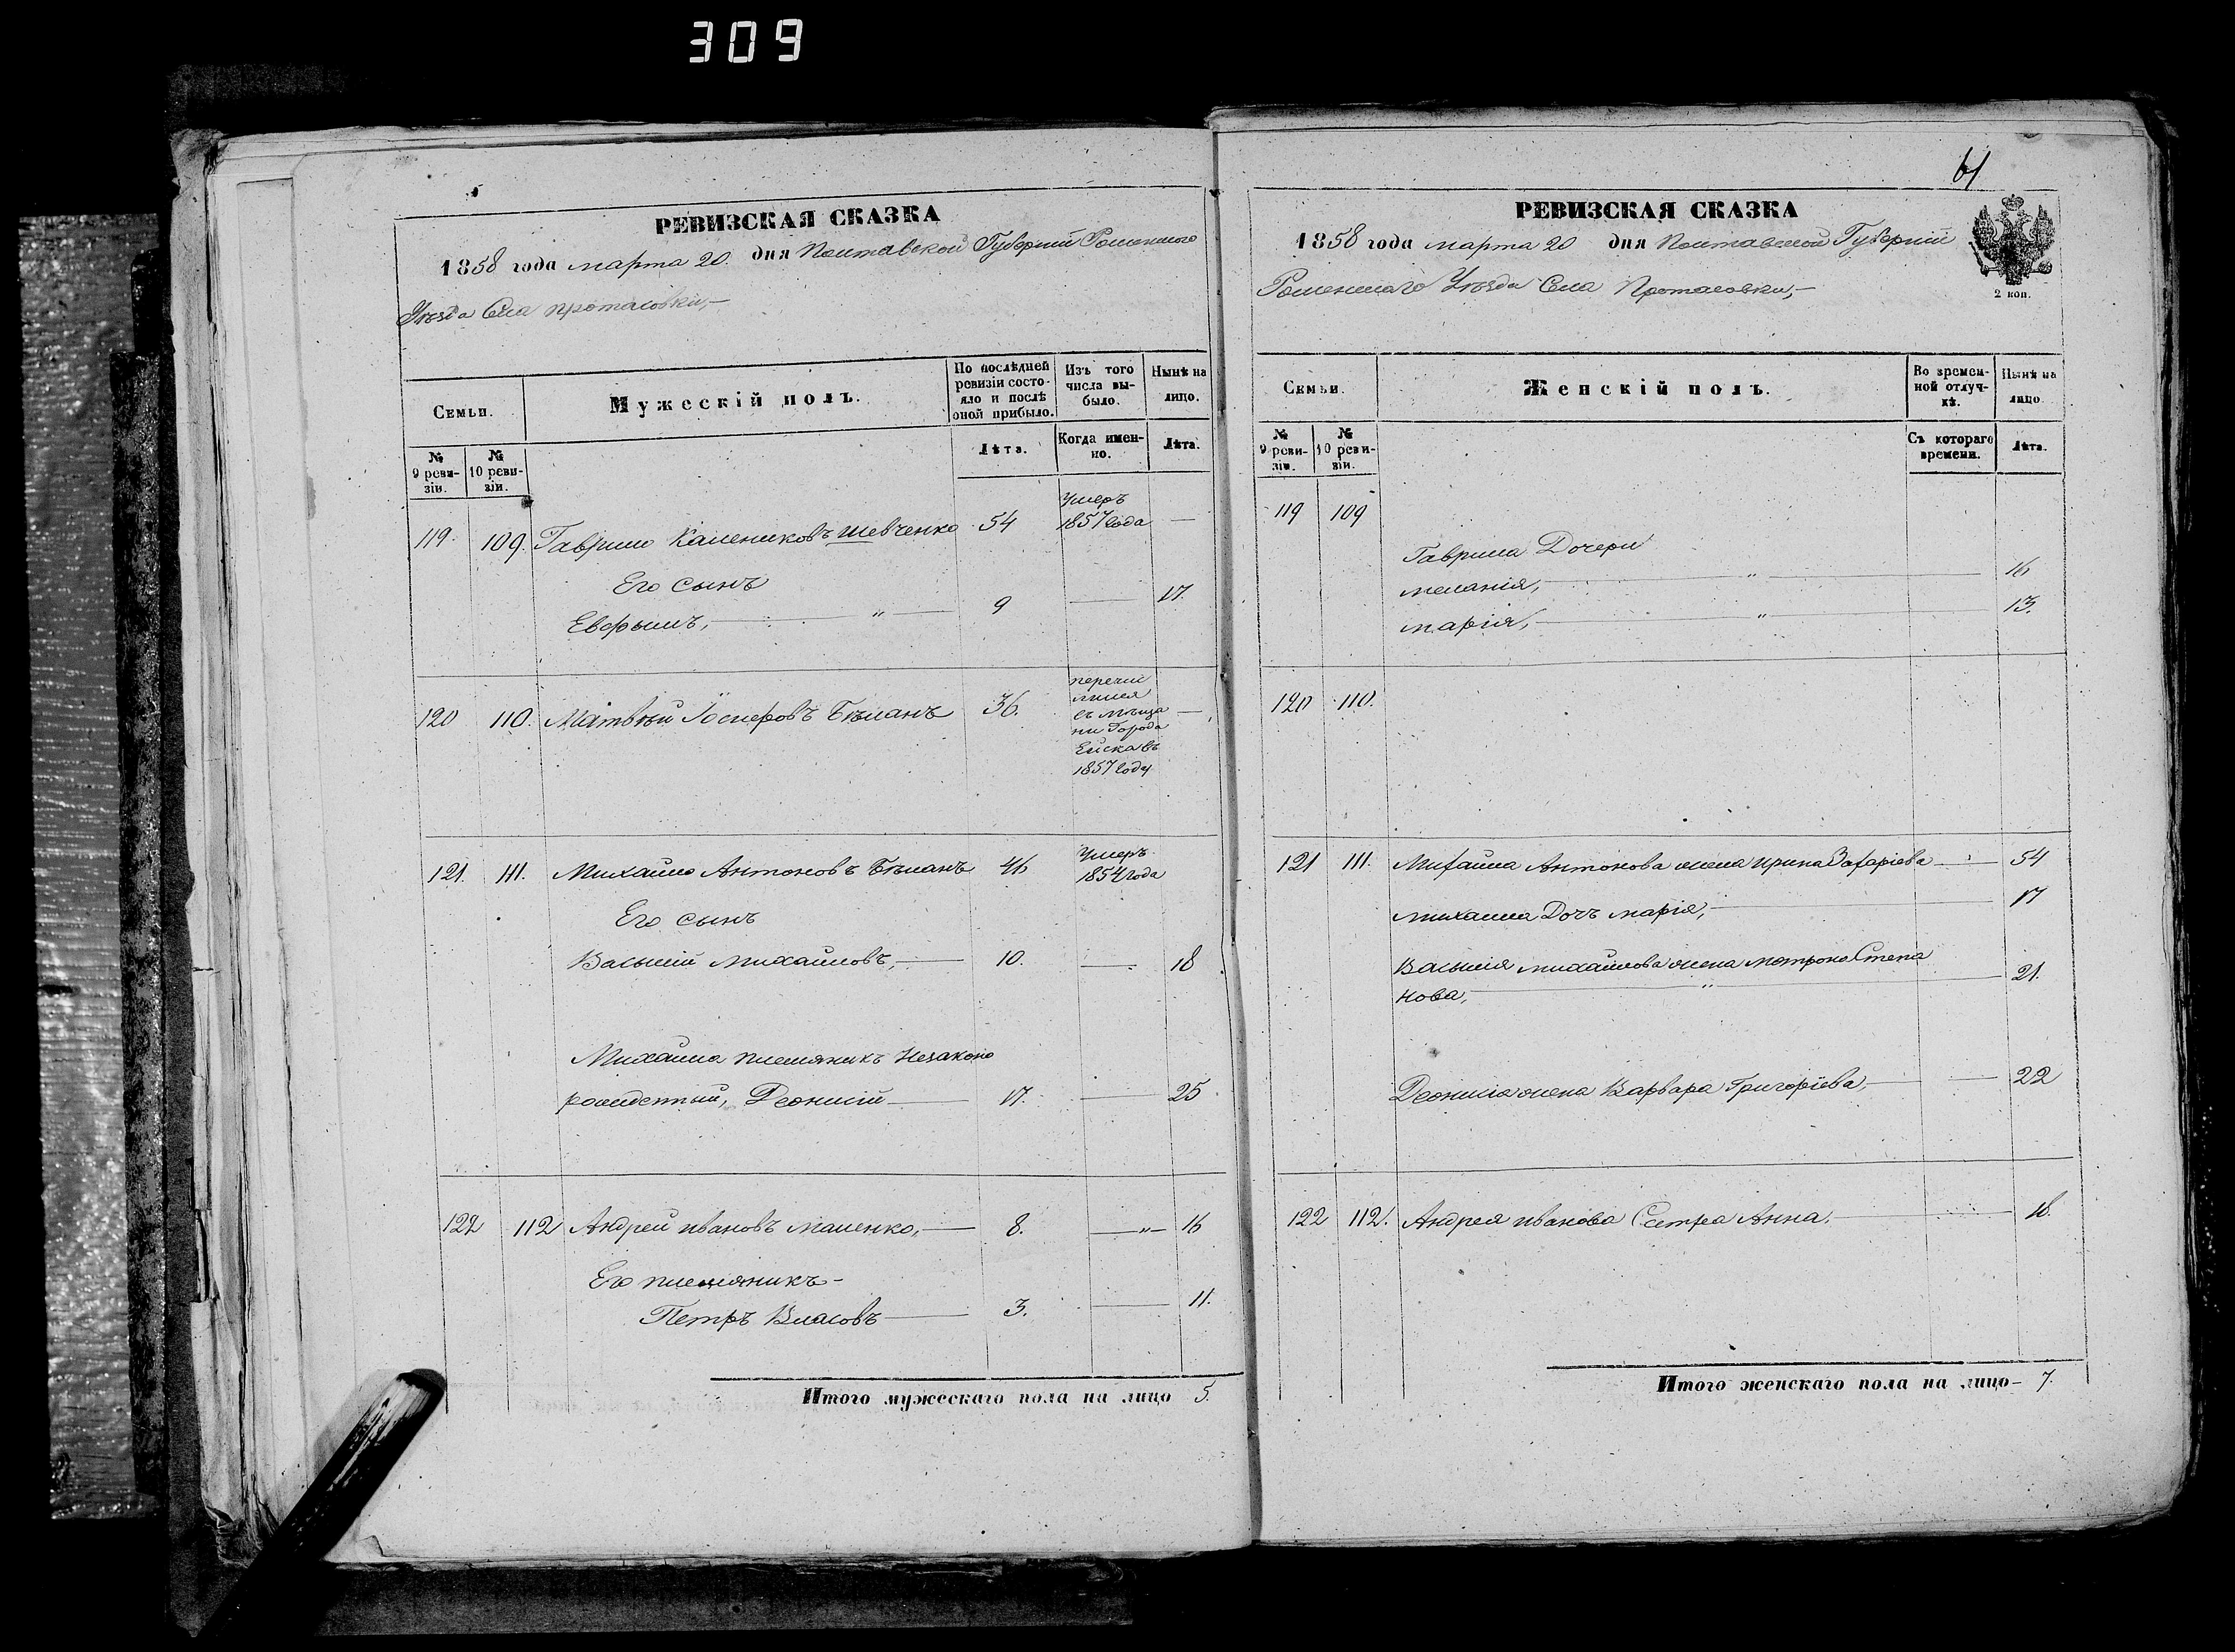 309
РЕВИЗСКАЯ СКАЗКА
1858 года марта 20. дня Полтавской Губерніи Роменского
Уѣзда Села протасовки,—
Семьи.
Мужескій полъ.
По послѣдней ревизіи состояло и послѣ оной прибыло.
Изъ того числа выбыло.
Нынѣ на лицо.
№ 9 ревизіи.
№ 10 ревизіи.
Лѣта.
Когда именно.
Лѣта.
119. 109. Гаврило Калениковъ Шевченко 54 Умеръ 1857 года —
Его сынъ
9 — 17.
120 110. Матвѣй Іосифовъ Бѣланъ 36. перечислился въ мѣщани Города Ейска въ 1857 году —
121. 111. Михайло Антоновъ Бѣланъ 46 Умеръ 1854 года
Его сынъ
Василій Михайловъ, — 10. — 18
Михайла племяникъ Незаконо
рожденный, Деонисій — 17. — 25
122 112 Андрей ивановъ маленко, — 8. —„— 16
Его племяникъ—
Петръ Власовъ — 3. — 11.
Итого мужескаго пола на лицо 5.
61
РЕВИЗСКАЯ СКАЗКА
1858 года марта 20 дня Полтавской Губерніи
Роменского Уѣзда Села Протасовки,—
2 коп.
Семьи.
Женскій полъ.
Во временной отлучкѣ.
Нынѣ на лицо.
№ 9 ревизіи.
№ 10 ревизіи.
Съ котораго времени.
Лѣта.
119 109
Гаврила Дочери
меланія, — „ — 16
марія, — „ — 13.
120 110.
121 111. Михайла Антонова жена ирина Захаріева — 54
михайла Дочъ марія, — 17
Василія михайлова жена матрона Степа
нова, — „ — 21.
Деонисія жена Варвара Григоріева, — 22
122 112. Андрея иванова Сестра Анна. — 18.
Итого женскаго пола на лицо— 7.